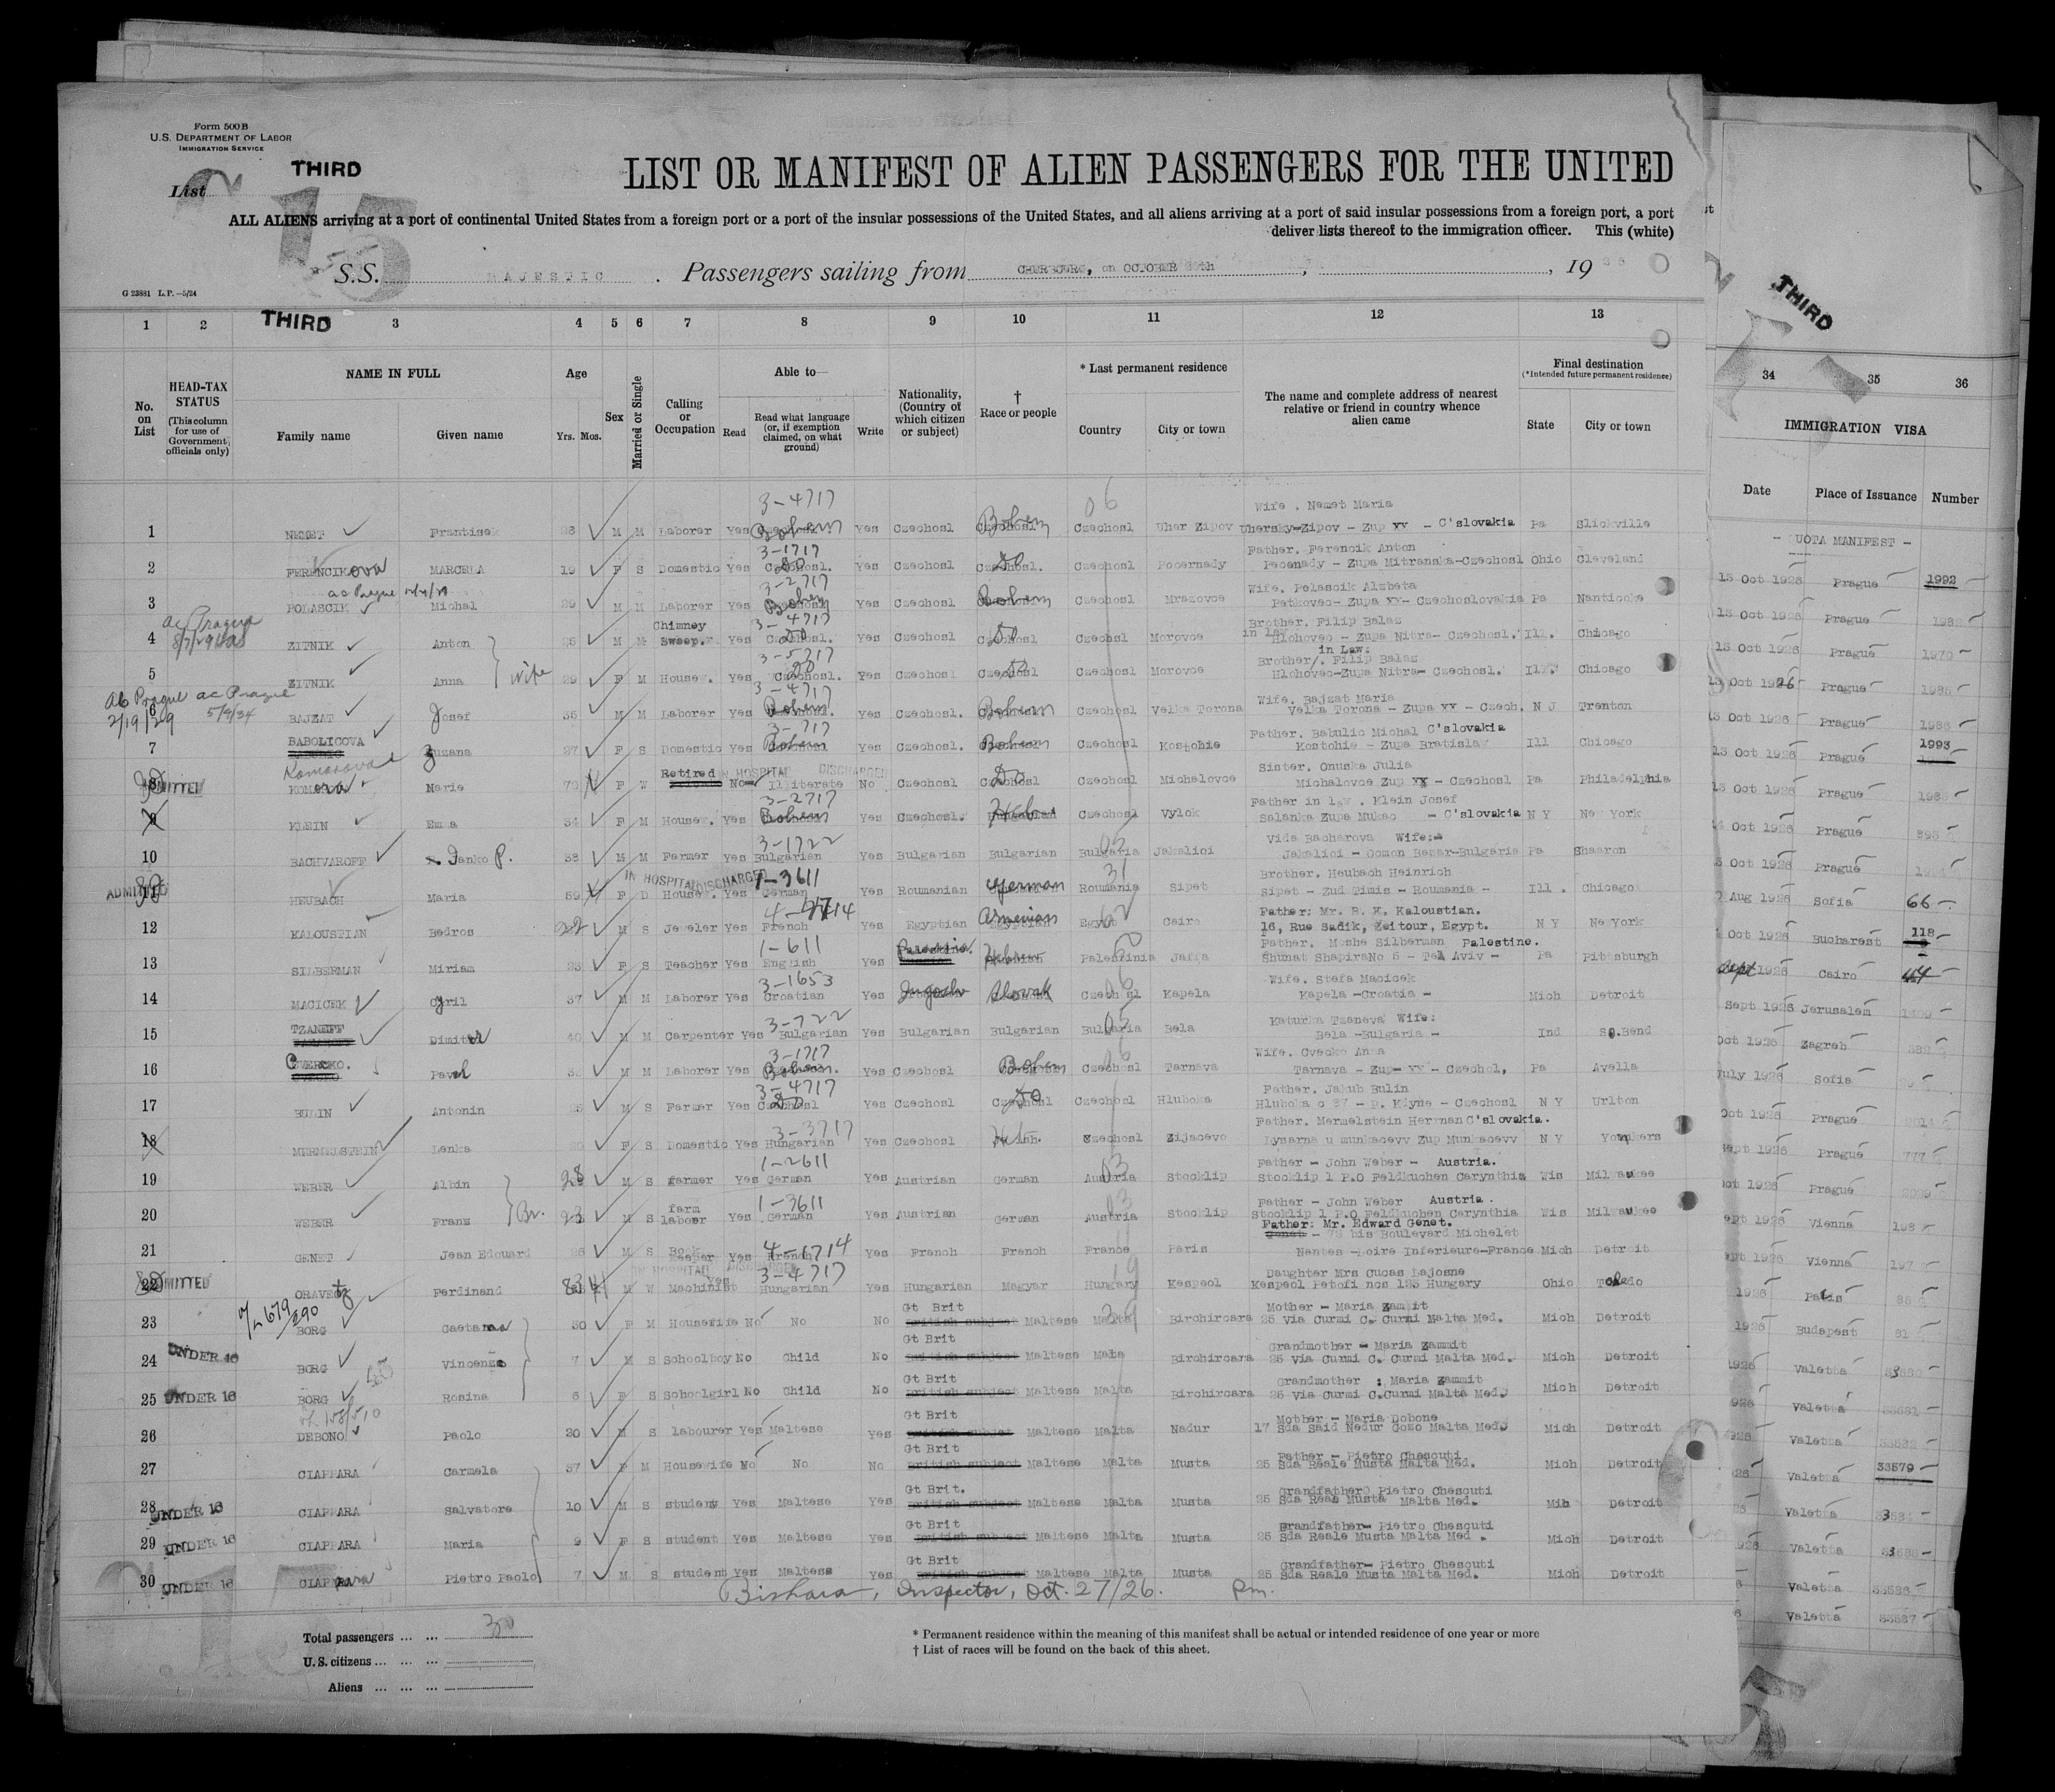 Form 500 B
U.S. DEPARTMENT OF LABOR
IMMIGRATION SERVICE
THIRD
List
15
LIST OR MANIFEST OF ALIEN PASSENGERS FOR THE UNITED
ALL ALIENS arriving at a port of continental United States from a foreign port or a port of the insular possessions of the United States, and all aliens arriving at a port of said insular possessions from a foreign port, a port
deliver lists thereof to the immigration officer. This (white)
S.S. MAJESTIC . Passengers sailing from CHERBOURG, on OCTOBER , 19
G 23881 L.P.—5/24
THIRD
1 2 3 4 5 6 7 8 9 10 11 12 13
No. on List
HEAD-TAX STATUS
(This column for use of Government officials only)
NAME IN FULL
Family name Given name
Age
Yrs. Mos.
Sex
Married or Single
Calling or Occupation
Able to—
Read
Read what language (or, if exemption claimed, on what ground)
Write
Nationality, (Country of which citizen or subject)
† Race or people
* Last permanent residence
Country City or town
The name and complete address of nearest relative or friend in country whence alien came
Final destination
(*Intended future permanent residence)
State City or town
3-4717 Wife . Nemet Maria
1 NEMET Frantisek 28 M M Laborer Yes Bohem Yes Czechosl Bohem Czechosl Uher Zipov Uhersky-Zipov - Zup XX - C'slovakia Pa Slickville
3-1717 Father. Ferencik Anton
2 FERENCIKova MARCELA 19 F S Domestic Yes Czechosl. Do Yes Czechosl Czechosl. Do Czechosl Pocernady Pecenady - Zupa Mitranska-Czechosl Ohio Cleveland
3-2717 Wife. Polascik Alzbeta
3 POLASCIK Michal 29 M M Laborer Yes Bohem Yes Czechosl Bohem Czechosl Mrazovce Petkovec- Zupa XX- Czechoslovakia Pa Nanticoke
ac Prague Chimney 3-4717 Brother. Filip Balaz
4 ZITNIK Anton 25 M M Sweep. Yes Czechosl. Do Yes Czechosl Czechosl Do Czechosl Morovce in law Hlohovec - Zupa Nitra- Czechosl. Ill. Chicago
3-5717 in Law:
Brother/. Filip Balaz
5 ZITNIK Anna Wife 29 F M Housew. Yes Czechosl. Do Yes Czechosl Czechosl Do Czechosl Morovce Hlohovec-Zupa Nitra- Czechosl. Ill Chicago
ab Prague 2/19/29 ac Prague 5/9/34 3-4717 Wife. Bajzat Maria
6 BAJZAT Josef 35 M M Laborer Yes Bohem Yes Czechosl. Bohem Czechosl Velka Torona Velka Torona - Zupa XX - Czech. N J Trenton
BABOLICOVA 3-717 Father. Babulic Michal C'slovakia
7 Zuzana 27 F S Domestic Yes Bohem Yes Czechosl. Bohem Czechosl Kostohie Kostohie - Zupa Bratislav Ill Chicago
Komarova Retired IN HOSPITAL DISCHARGED Sister. Onuska Julia
8 ADMITTED Marie F W No Illiterate No Czechosl Czechosl Do Czechosl Michalovce Michalovce Zup XX - Czechosl Pa Philadelphia
3-2717 Father in law . Klein Josef
9 KLEIN Ema 34 F M Housew. Yes Bohem Yes Czechosl. Hebrew Czechosl Vylok Salanka Zupa Mukac - C'slovakia N Y New York
3-1722 Vida Bacharova Wife:
10 BACHVAROFF Danko P. 38 M M Farmer Yes Bulgarian Yes Bulgarian Bulgarian Bulgaria Jakalioi Jakalioi - Ocmon Bazar-Bulgaria Pa Sharon
IN HOSPITAL DISCHARGED 1-3611 Brother. Heubach Heinrich
ADMITTED 11 HEUBACH Maria 59 F D Housew. Yes German Yes Roumanian German Roumania Sipet Sipet - Zud Timis - Roumania - Ill . Chicago
Father: Mr. B. K. Kaloustian.
12 KALOUSTIAN Bedros 22 M S Jeweler Yes French Yes Egyptian Armenian Egypt Cairo 16, Rue Sadik, Zeitour, Egypt. N Y NewYork
1-611 Palestine. Father. Moshe Silberman Palestine.
13 SILBERMAN Miriam 23 F S Teacher Yes English Yes Hebrew Palestinia Jaffa Shunat ShapiraNo 5 - Tel Aviv - Pa Pittsburgh
3-1653 Wife. Stefa Macicek
14 MACICEK Cyril 37 M M Laborer Yes Croatian Yes Jugoslv Slovak Czechosl Kapela Kapela -Croatia - Mich Detroit
TZANEFF 3-722 Katurka Tzaneva Wife:
15 Dimiter 40 M M Carpenter Yes Bulgarian Yes Bulgarian Bulgarian Bulgaria Bela Bela -Bulgaria - Ind So.Bend
CWERCKO. 3-1717 Wife. Cvecko Anna
16 Pavel M M Laborer Yes Bohem. Yes Czechosl Bohem Czechosl Tarnava Tarnava - Zup- XX - Czechol, Pa Avella
3-4717 Father. Jakub Bulin
17 BULIN Antonin 25 M S Farmer Yes Czechosl Do Yes Czechosl Czechosl Do Czechosl Hluboka Hluboka c 37 - p. Kdyne - Czechosl N Y Urlton
3-3717 Father. Mermelstein Herrman C'slovakia.
18 MERMELSTEIN Lenka 20 F S Domestic Yes Hungarian Yes Czechosl Heb. Czechosl Zijacevo Lysarna u munkacevv Zup Munkacevv N Y Yonkers
1-2611 Father - John Weber - Austria.
19 WEBER Albin 28 M S farmer Yes German Yes Austrian German Austria Stocklip Stocklip 1 P.O Feldkuchen Carynthia Wis Milwaukee
farm 1-3611 Father - John Weber Austria .
20 WEBER Franz Br. 23 M S laborer Yes German Yes Austrian German Austria Stocklip Stocklip 1 P.O Feldkuchen Carynthia Wis Milwaukee
Father: Mr. Edward Genet.
Book 4-1714 Genet - 78 bis Boulevard Michelet
21 GENET Jean Edouard 26 M S keeper Yes French Yes French French France Paris Nantes -Loire Inferieure-France Mich Detroit
IN HOSPITAL DISCHARGED 3-4717 Daughter Mrs Cucas Lajosne
22 ADMITTED ORAVETZ Ferdinand M W Machinist Yes Hungarian Yes Hungarian Magyar Hungary Kespeol Kespeol Petofi nos 123 Hungary Ohio Toledo
Gt Brit Mother - Maria Zammit
23 BORG Gaetana 30 F M Housewife No No No British subject Maltese Malta Birchircara 25 Via Curmi C. Curmi Malta Med. Mich Detroit
Gt Brit Grandmother - Maria Zammit
24 UNDER 16 BORG Vincenzo 7 M S Schoolboy No Child No British subject Maltese Malta Birchircara 25 Via Curmi C. Curmi Malta Med. Mich Detroit
Gt Brit Grandmother : Maria Zammit
25 UNDER 16 BORG Rosina 6 F S Schoolgirl No Child No British subject Maltese Malta Birchircara 25 Via Curmi C.Curmi Malta Med. Mich Detroit
Gt Brit Mother - Maria Dobone
26 DEBONO Paolo 20 M S labourer Yes Maltese Yes British subject Maltese Malta Nadur 17 Sda Said Nedur Gozo Malta Med. Mich Detroit
Gt Brit Father - Pietro Chescuti
27 CIAPPARA Carmela 37 F M Housewife No No No British subject Maltese Malta Musta 25 Sda Reale Musta Malta Med. Mich Detroit
Gt Brit. Grandfather Pietro Chescuti
28 UNDER 16 CIAPPARA Salvatore 10 M S student Yes Maltese Yes British subject Maltese Malta Musta 25 Sda Reale Musta Malta Med. Mih Detroit
Gt Brit Grandfather- Pietro Chescuti
29 UNDER 16 CIAPPARA Maria 9 F S student Yes Maltese Yes British subject Maltese Malta Musta 25 Sda Reale Musta Malta Med . Mich Detroit
Gt Brit Grandfather- Pietro Chescuti
30 UNDER 16 CIAPPARA Pietro Paolo 7 M S student Yes Maltese Yes British subject Maltese Malta Musta 25 Sda Reale Musta Malta Med. Mich Detroit
Bishara, Inspector, Oct. 27/26. Pm.
Total passengers ... ... 30
U.S. citizens ... ... ...
Aliens ... ... ...
* Permanent residence within the meaning of this manifest shall be actual or intended residence of one year or more
† List of races will be found on the back of this sheet.
THIRD
34 35 36
IMMIGRATION VISA
Date Place of Issuance Number
- QUOTA MANIFEST -
13 Oct 1926 Prague 1992
13 Oct 1926 Prague
13 Oct 1926 Prague 1970
13 Oct 1926 Prague 1985
13 Oct 1926 Prague 1986
1993
13 Oct 1926 Prague
13 Oct 1926 Prague
Oct 1926 Prague 893
Oct 1926 Prague
Aug 1926 Sofia 66
Oct 1926 Bucharest 118
Sept 1926 Cairo 44
Sept 1926 Jerusalem
Oct 1926 Zagreb
July 1926 Sofia
Oct 1926 Prague
Sept 1926 Prague
Oct 1926 Prague
Sept 1926 Vienna 198
Sept 1926 Vienna 197
1926 Paris
1926 Budapest
1926 Valetta
926 Valetta
926 Valetta
26 Valetta 33579
26 Valetta
926 Valetta
6 Valetta
6 Valetta 33587